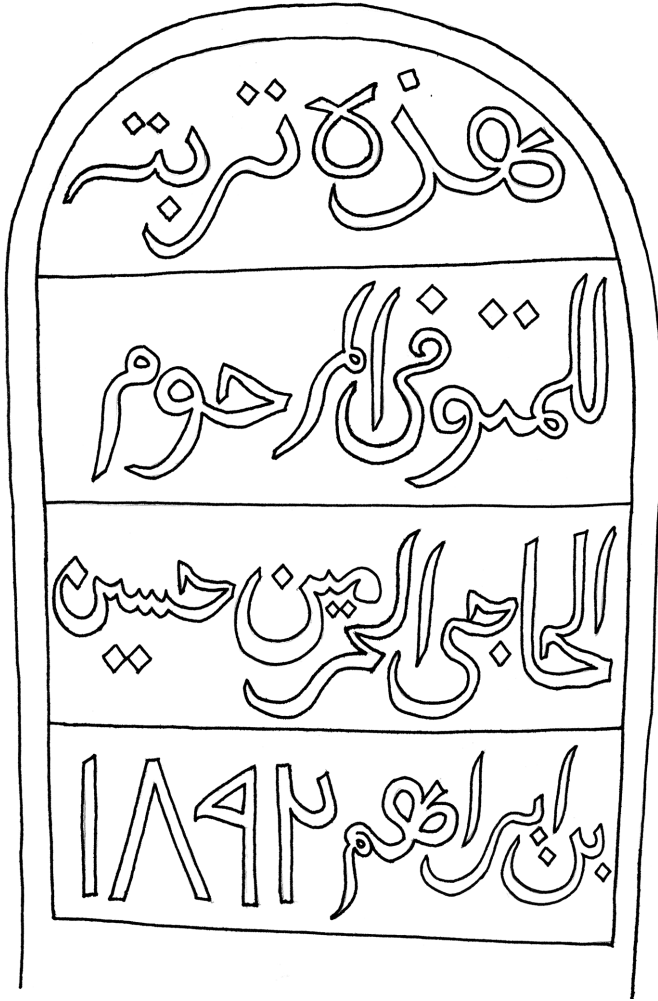 هذه تربته
المتوفى المرحوم
الحاجى الحرمين حسين
بن ابراهم ١٨٩٢